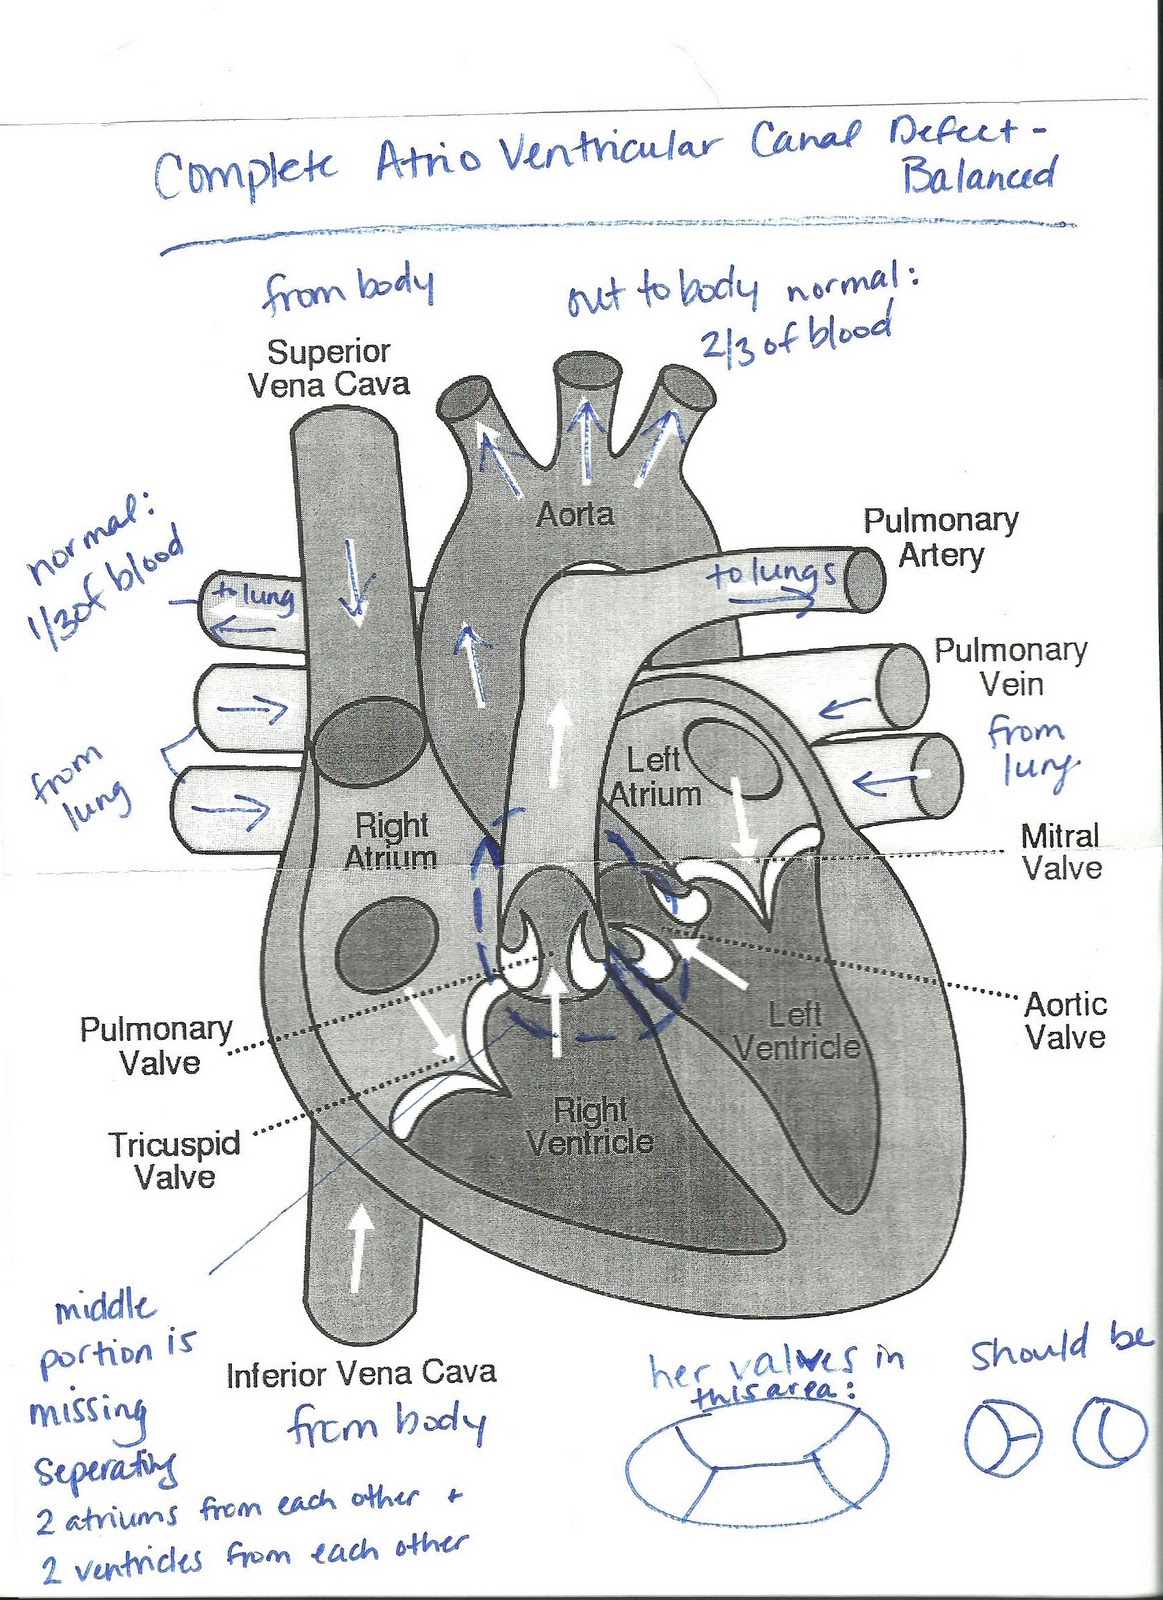 Complete Atrio Ventricular Canal Defect -
Balanced
from body
out to body normal:
2/3 of blood
Superior
Vena Cava
Aorta
normal:
1/3 of blood
Pulmonary
Artery
to lungs
to lung
Pulmonary
Vein
from
lung
from
lung
Left
Atrium
Right
Atrium
Mitral
Valve
Pulmonary
Valve
Aortic
Valve
Left
Ventricle
Right
Ventricle
Tricuspid
Valve
middle
portion is
missing
seperating
2 atriums from each other +
2 ventricles from each other
Inferior Vena Cava
from body
her valves in
this area:
should be